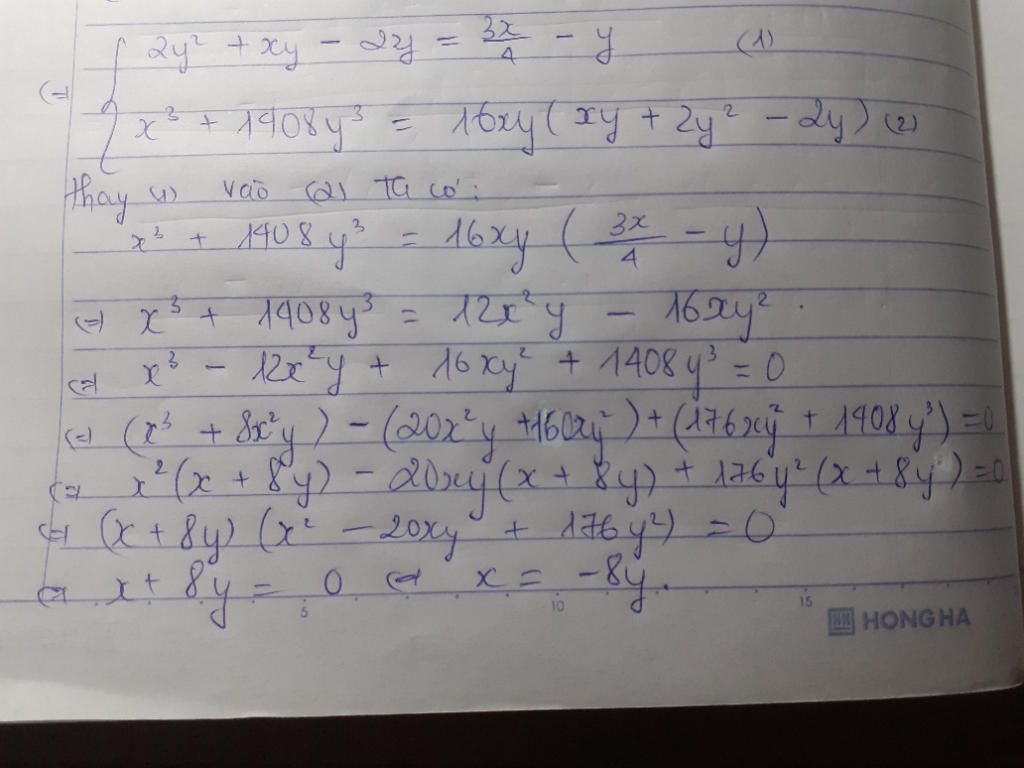 (=) { 2y² + xy - 2y = 3x/4 - y (1)
x³ + 1408y³ = 16xy(xy + 2y² - 2y) (2)
thay (1) vào (2) ta có:
x³ + 1408y³ = 16xy (3x/4 - y)
(=) x³ + 1408y³ = 12x²y - 16xy².
(=) x³ - 12x²y + 16xy² + 1408y³ = 0
(=) (x³ + 8x²y) - (20x²y + 160xy²) + (176xy² + 1408y³) = 0
(=) x²(x + 8y) - 20xy(x + 8y) + 176y²(x + 8y) = 0
(=) (x + 8y) (x² - 20xy + 176y²) = 0
(=) x + 8y = 0 (=) x = -8y.
5 10 15
HH HONG HA